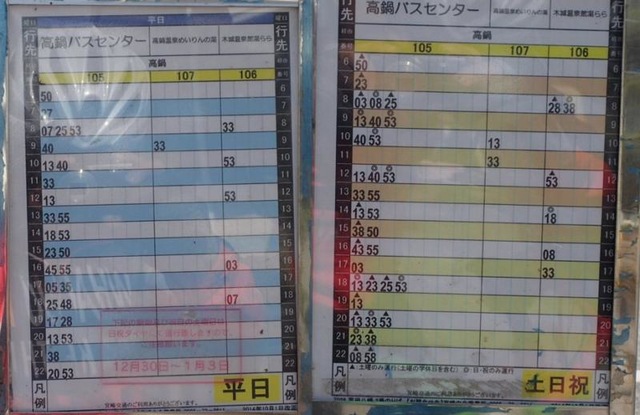 曜日 平日 曜日
行先 高鍋バスセンター 高鍋温泉めいりんの湯 木城温泉館湯らら 行先
経由 高鍋 経由
番号 105 107 106 番号
6 50 6
7 27 7
8 07 25 53 33 8
9 40 33 9
10 13 40 53 10
11 33 11
12 13 53 12
13 33 55 13
14 18 53 14
15 23 50 15
16 45 55 03 16
17 05 35 17
18 25 48 07 18
19 17 28 19
20 13 53 20
21 38 21
22 20 53 22
12月30日～1月3日
凡例 平日 凡例
宮崎交通のご利用ありがとうございます。
行先 高鍋バスセンター 高鍋温泉めいりんの湯 木城温泉館湯らら 行先
経由 高鍋 経由
番号 105 107 106 番号
6 ▲50 6
7 ▲23 7
8 ▲03 ◎08 ▲25 ▲28 ◎38 8
9 ◎13 ▲40 ◎53 9
10 40 ◎53 13 10
11 33 11
12 ▲13 ◎40 ◎53 ▲53 12
13 33 55 13
14 ▲13 53 ◎18 14
15 ▲38 50 15
16 ▲43 55 08 16
17 03 33 17
18 ◎13 ▲23 ▲25 ◎53 18
19 ▲13 19
20 ▲13 ▲33 ▲53 20
21 ◎23 ▲38 21
22 ▲08 ▲58 22
▲:土曜のみ運行(土曜の学休日を含む) ◎:日・祝のみ運行
凡例 土日祝 凡例
宮崎交通のご利用ありがとうございます。